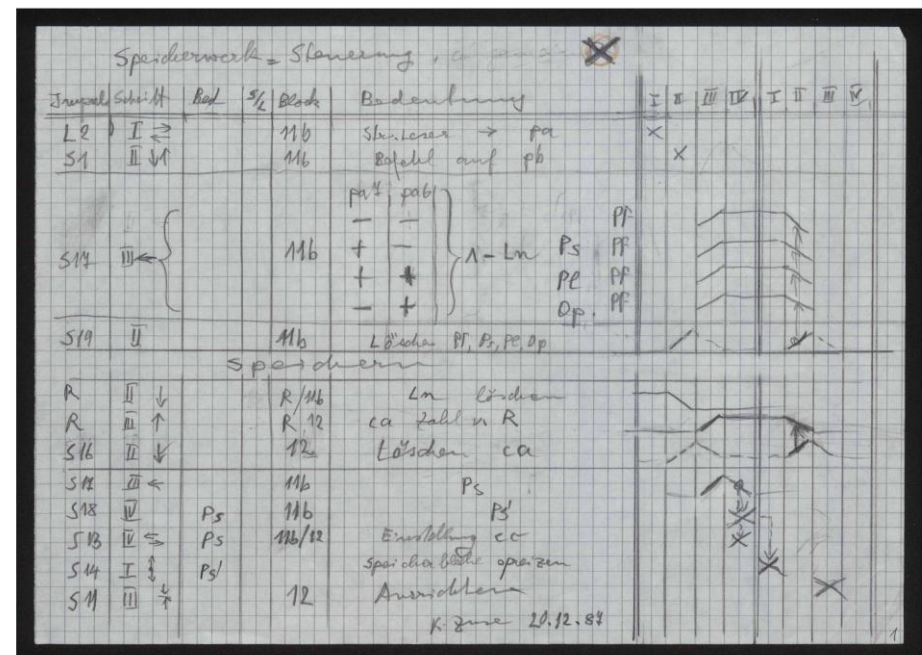 Speicherwerk = Steuerung,
Impuls Schritt Bed S/L Block Bedeutung I II III IV I II III IV
L2 I ⇄ 11b → pa
S1 II ↓↑ 11b Befehl auf pb
pa7 pa6
— — Pf
S17 III ← 11b + — Λ - Ln Ps Pf
+ + Pl Pf
— + Op. Pf
S19 II 11b Löschen Pf, Ps, Pl, Op
Speichern
R II ↓ R/11b Ln löschen
R III ↑ R, 12 ca Zahl v R
S16 II 12 Löschen ca
S17 III ← 11b Ps
S18 IV Ps 11b Ps'
S13 IV Ps 11b/12 Einstellung cc
S14 I ↕ Ps' Speicherbleche spreizen
S11 III 12 Ausrichten
K. Zuse 20.12.87
1